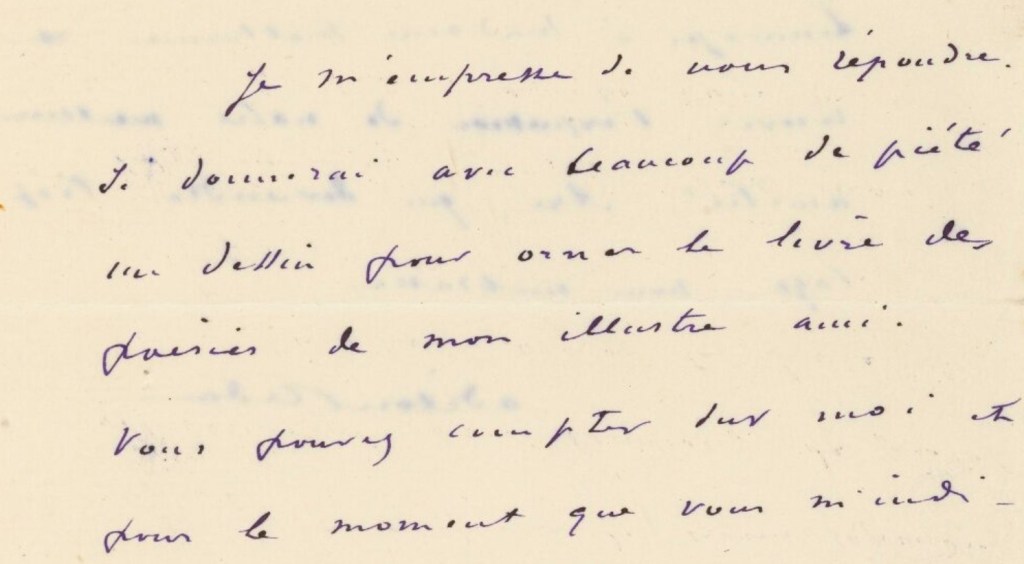 Je m'empresse de vous répondre.
Je donnerai avec beaucoup de piété
un dessin pour orner le livre des
poésies de mon illustre ami.
Vous pouvez compter sur moi et
pour le moment que vous m'indi-